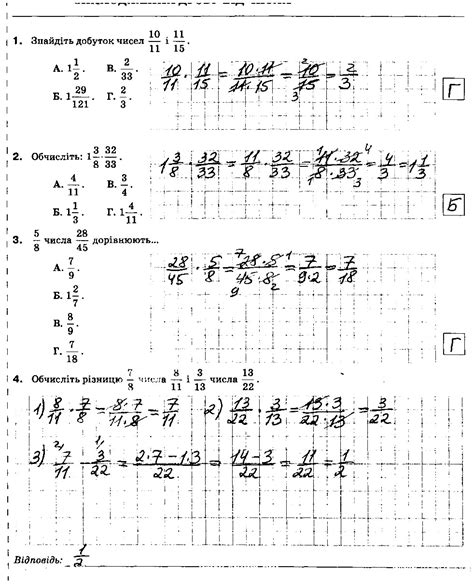 1. Знайдіть добуток чисел 10/11 і 11/15.
А. 1 1/2. В. 2/33.
Б. 1 29/121. Г. 2/3.
10/11 · 11/15 = 10·11/11·15 = 10/15 = 2/3
Г
2. Обчисліть: 1 3/8 · 32/33.
А. 4/11. В. 3/4.
Б. 1 1/3. Г. 1 4/11.
1 3/8 · 32/33 = 11/8 · 32/33 = 11·32/8·33 = 4/3 = 1 1/3
Б
3. 5/8 числа 28/45 дорівнюють...
А. 7/9.
Б. 1 2/7.
В. 8/9.
Г. 7/18.
28/45 · 5/8 = 28·5/45·8 = 7/9·2 = 7/18
Г
4. Обчисліть різницю 7/8 числа 8/11 і 3/13 числа 13/22.
1) 8/11 · 7/8 = 8·7/11·8 = 7/11 2) 13/22 · 3/13 = 13·3/22·13 = 3/22
3) 7/11 - 3/22 = 2·7-1·3/22 = 14-3/22 = 11/22 = 1/2
Відповідь: 1/2